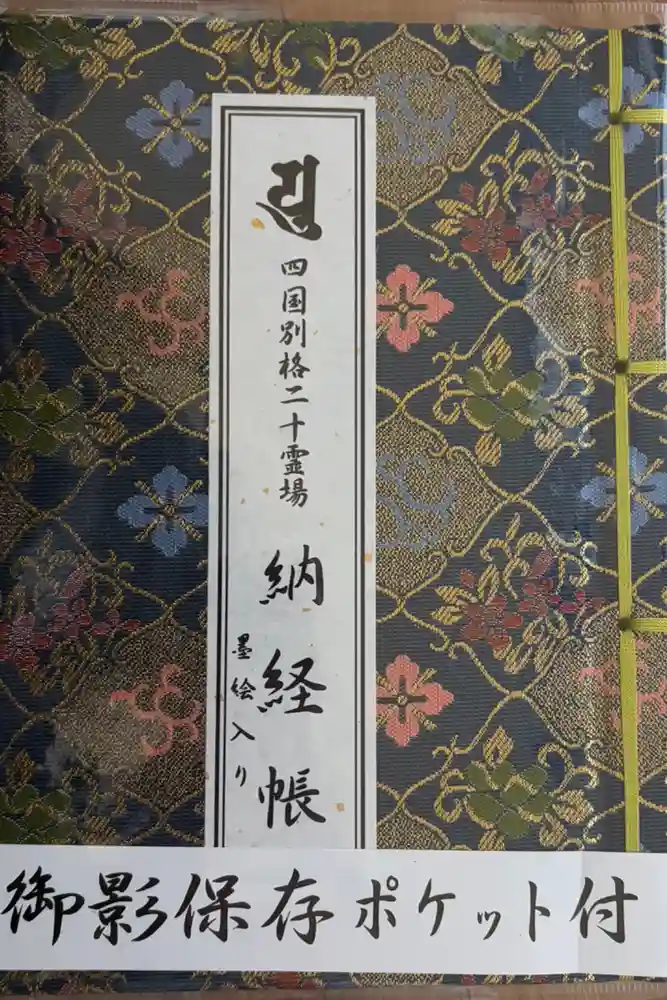 四国別格二十霊場
納経帳
墨絵入り
御影保存ポケット付